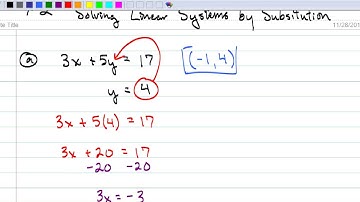 Solving Linear Systems by Substitution
te Title
11/28/201
a 3x + 5y = 17 (-1, 4)
y = 4
3x + 5(4) = 17
3x + 20 = 17
-20 -20
3x = -3